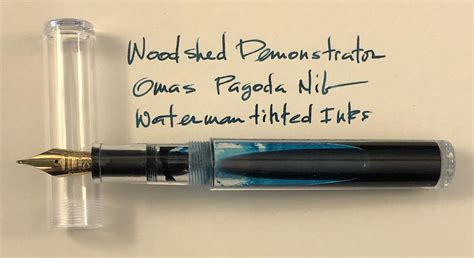 Woodshed Demonstrator
Omas Pagoda Nib
Waterman tinted Inks